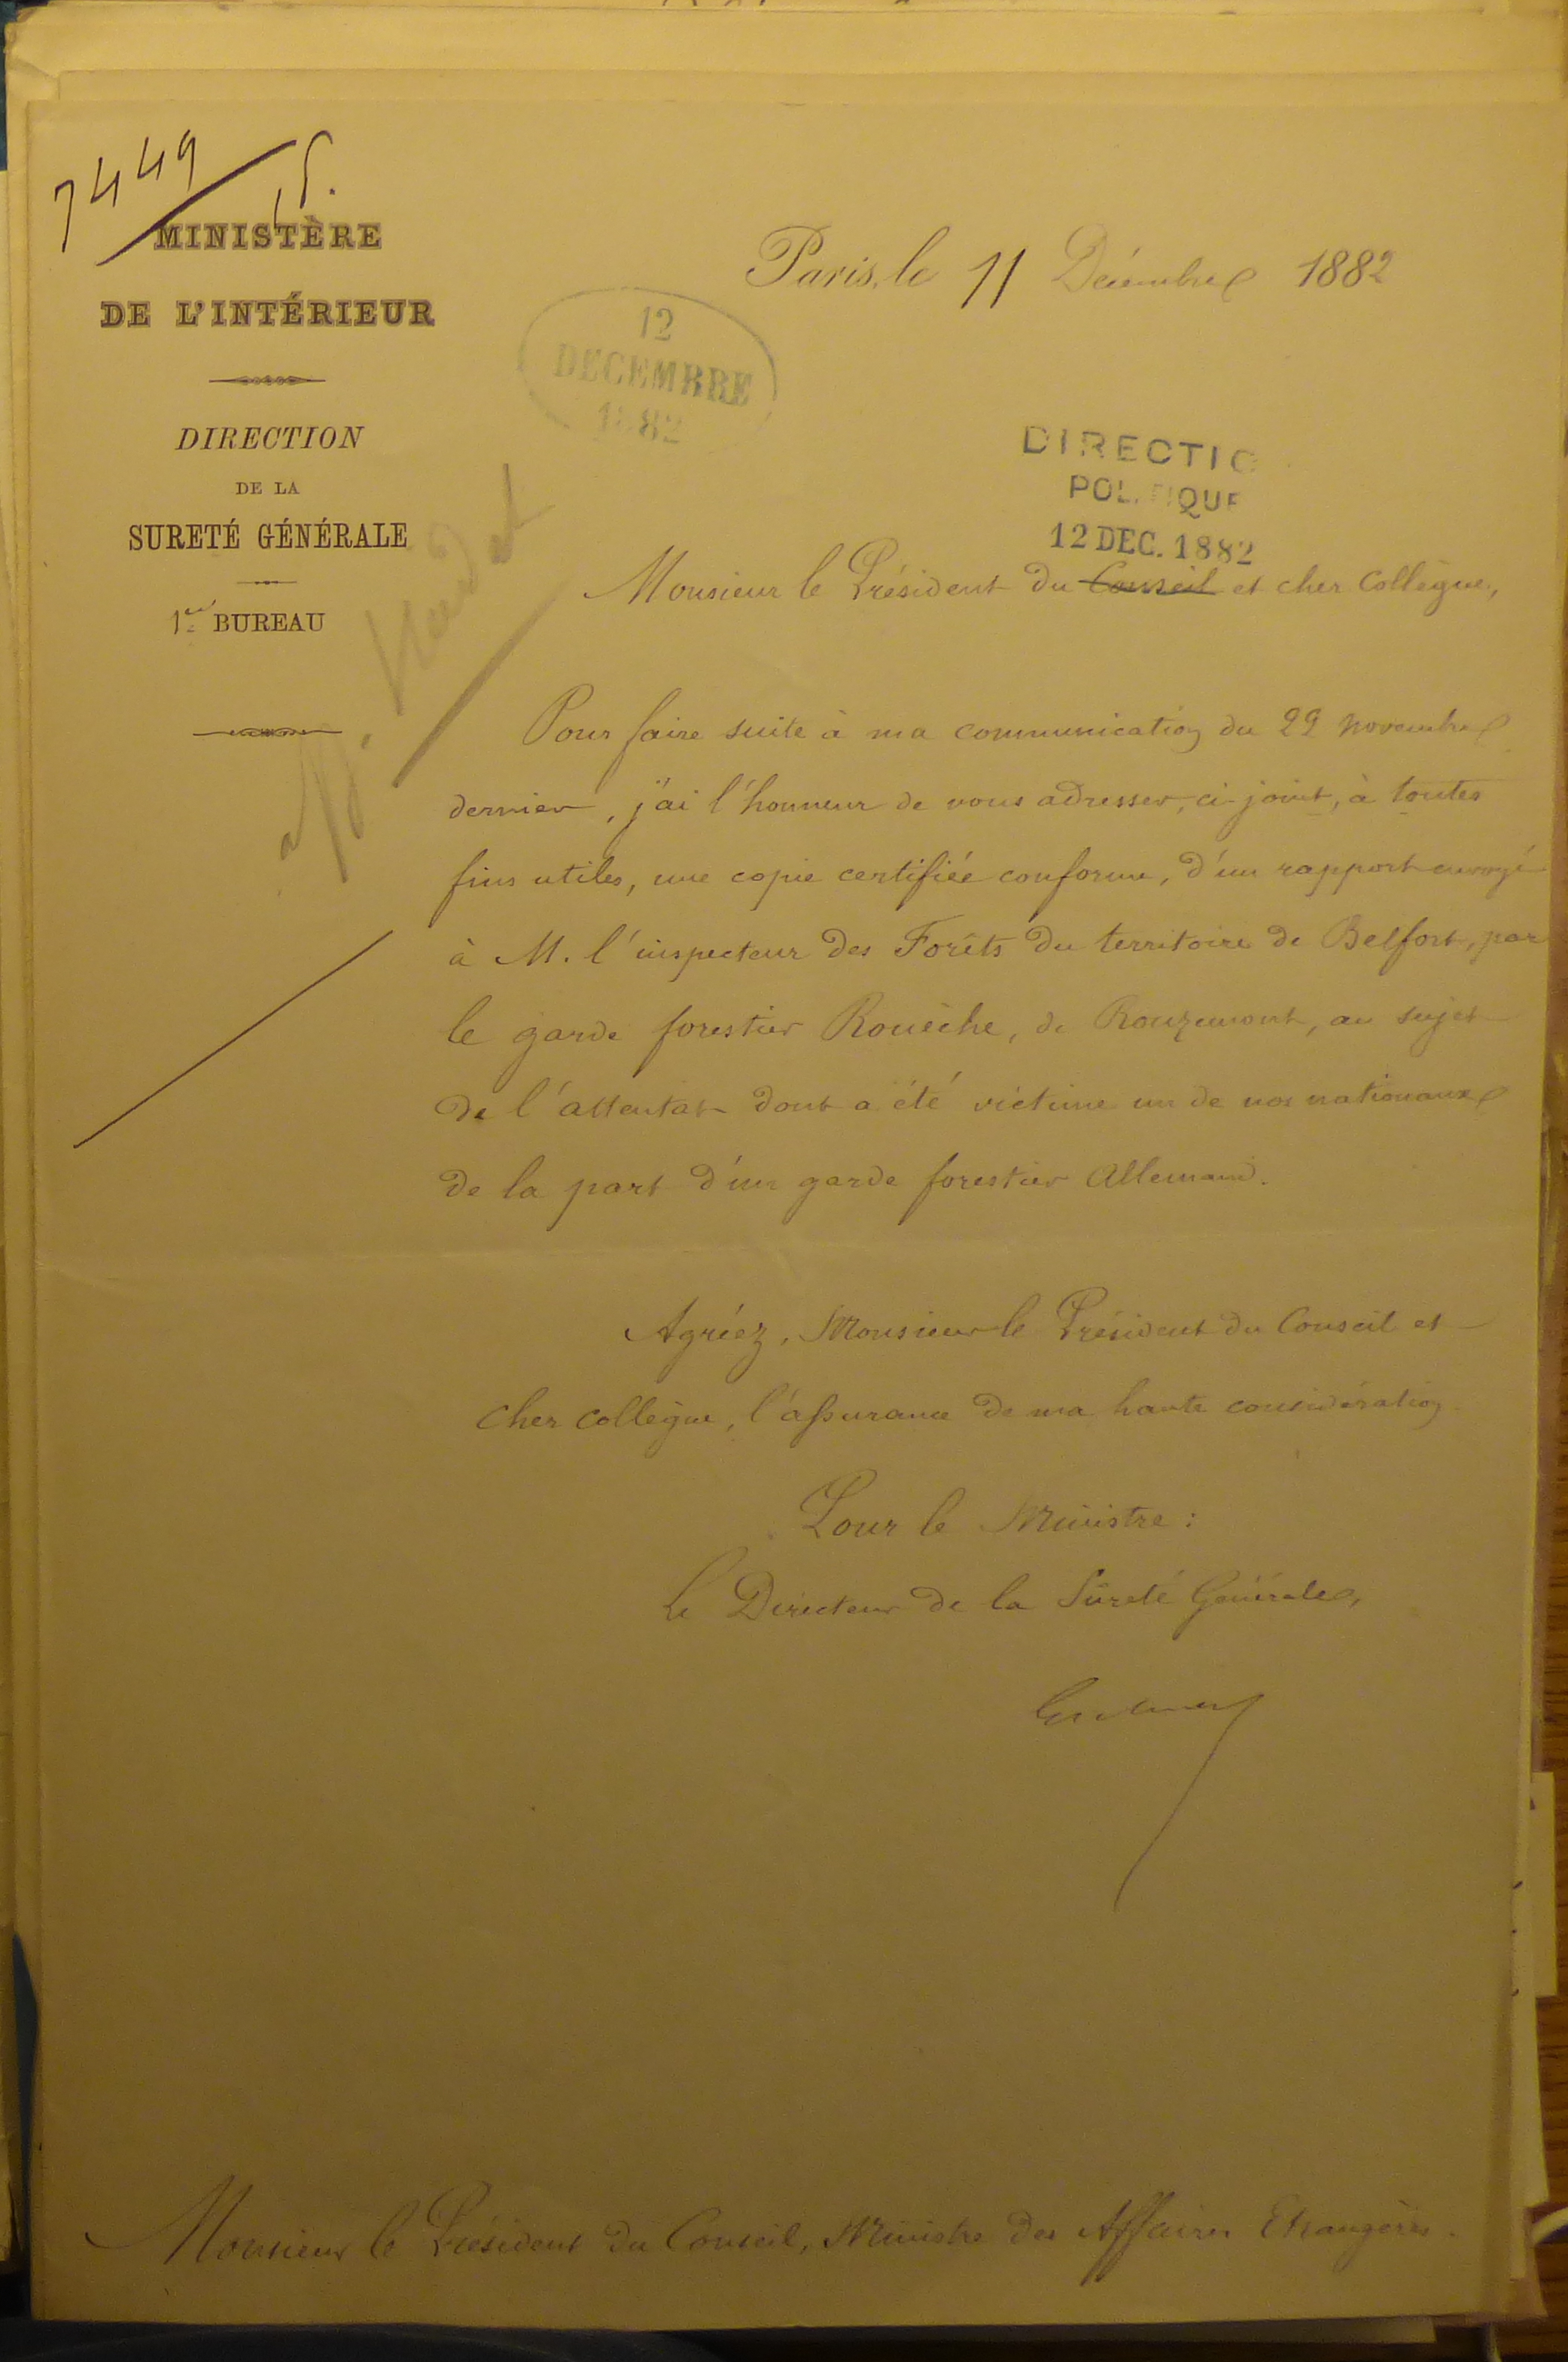 7449
MINISTÈRE
DE L'INTÉRIEUR
DIRECTION
DE LA
SURETÉ GÉNÉRALE
1er BUREAU
Paris, le 11 Décembre 1882
12
DECEMBRE
1882
DIRECTIO
POLITIQUE
12 DEC. 1882
aff.
Monsieur le Président du Conseil et cher Collègue,
Pour faire suite à ma communication du 29 novembre
dernier, j'ai l'honneur de vous adresser, ci-joint, à toutes
fins utiles, une copie certifiée conforme, d'un rapport envoyé
à M. l'inspecteur des Forêts du territoire de Belfort, par
le garde forestier Rouèche, de Rougemont, au sujet
de l'attentat dont a été victime un de nos nationaux
de la part d'un garde forestier Allemand.
Agréez, Monsieur le Président du Conseil et
cher collègue, l'assurance de ma haute considération.
Pour le Ministre :
Le Directeur de la Sûreté Générale,
Monsieur le Président du Conseil, Ministre des Affaires Etrangères.